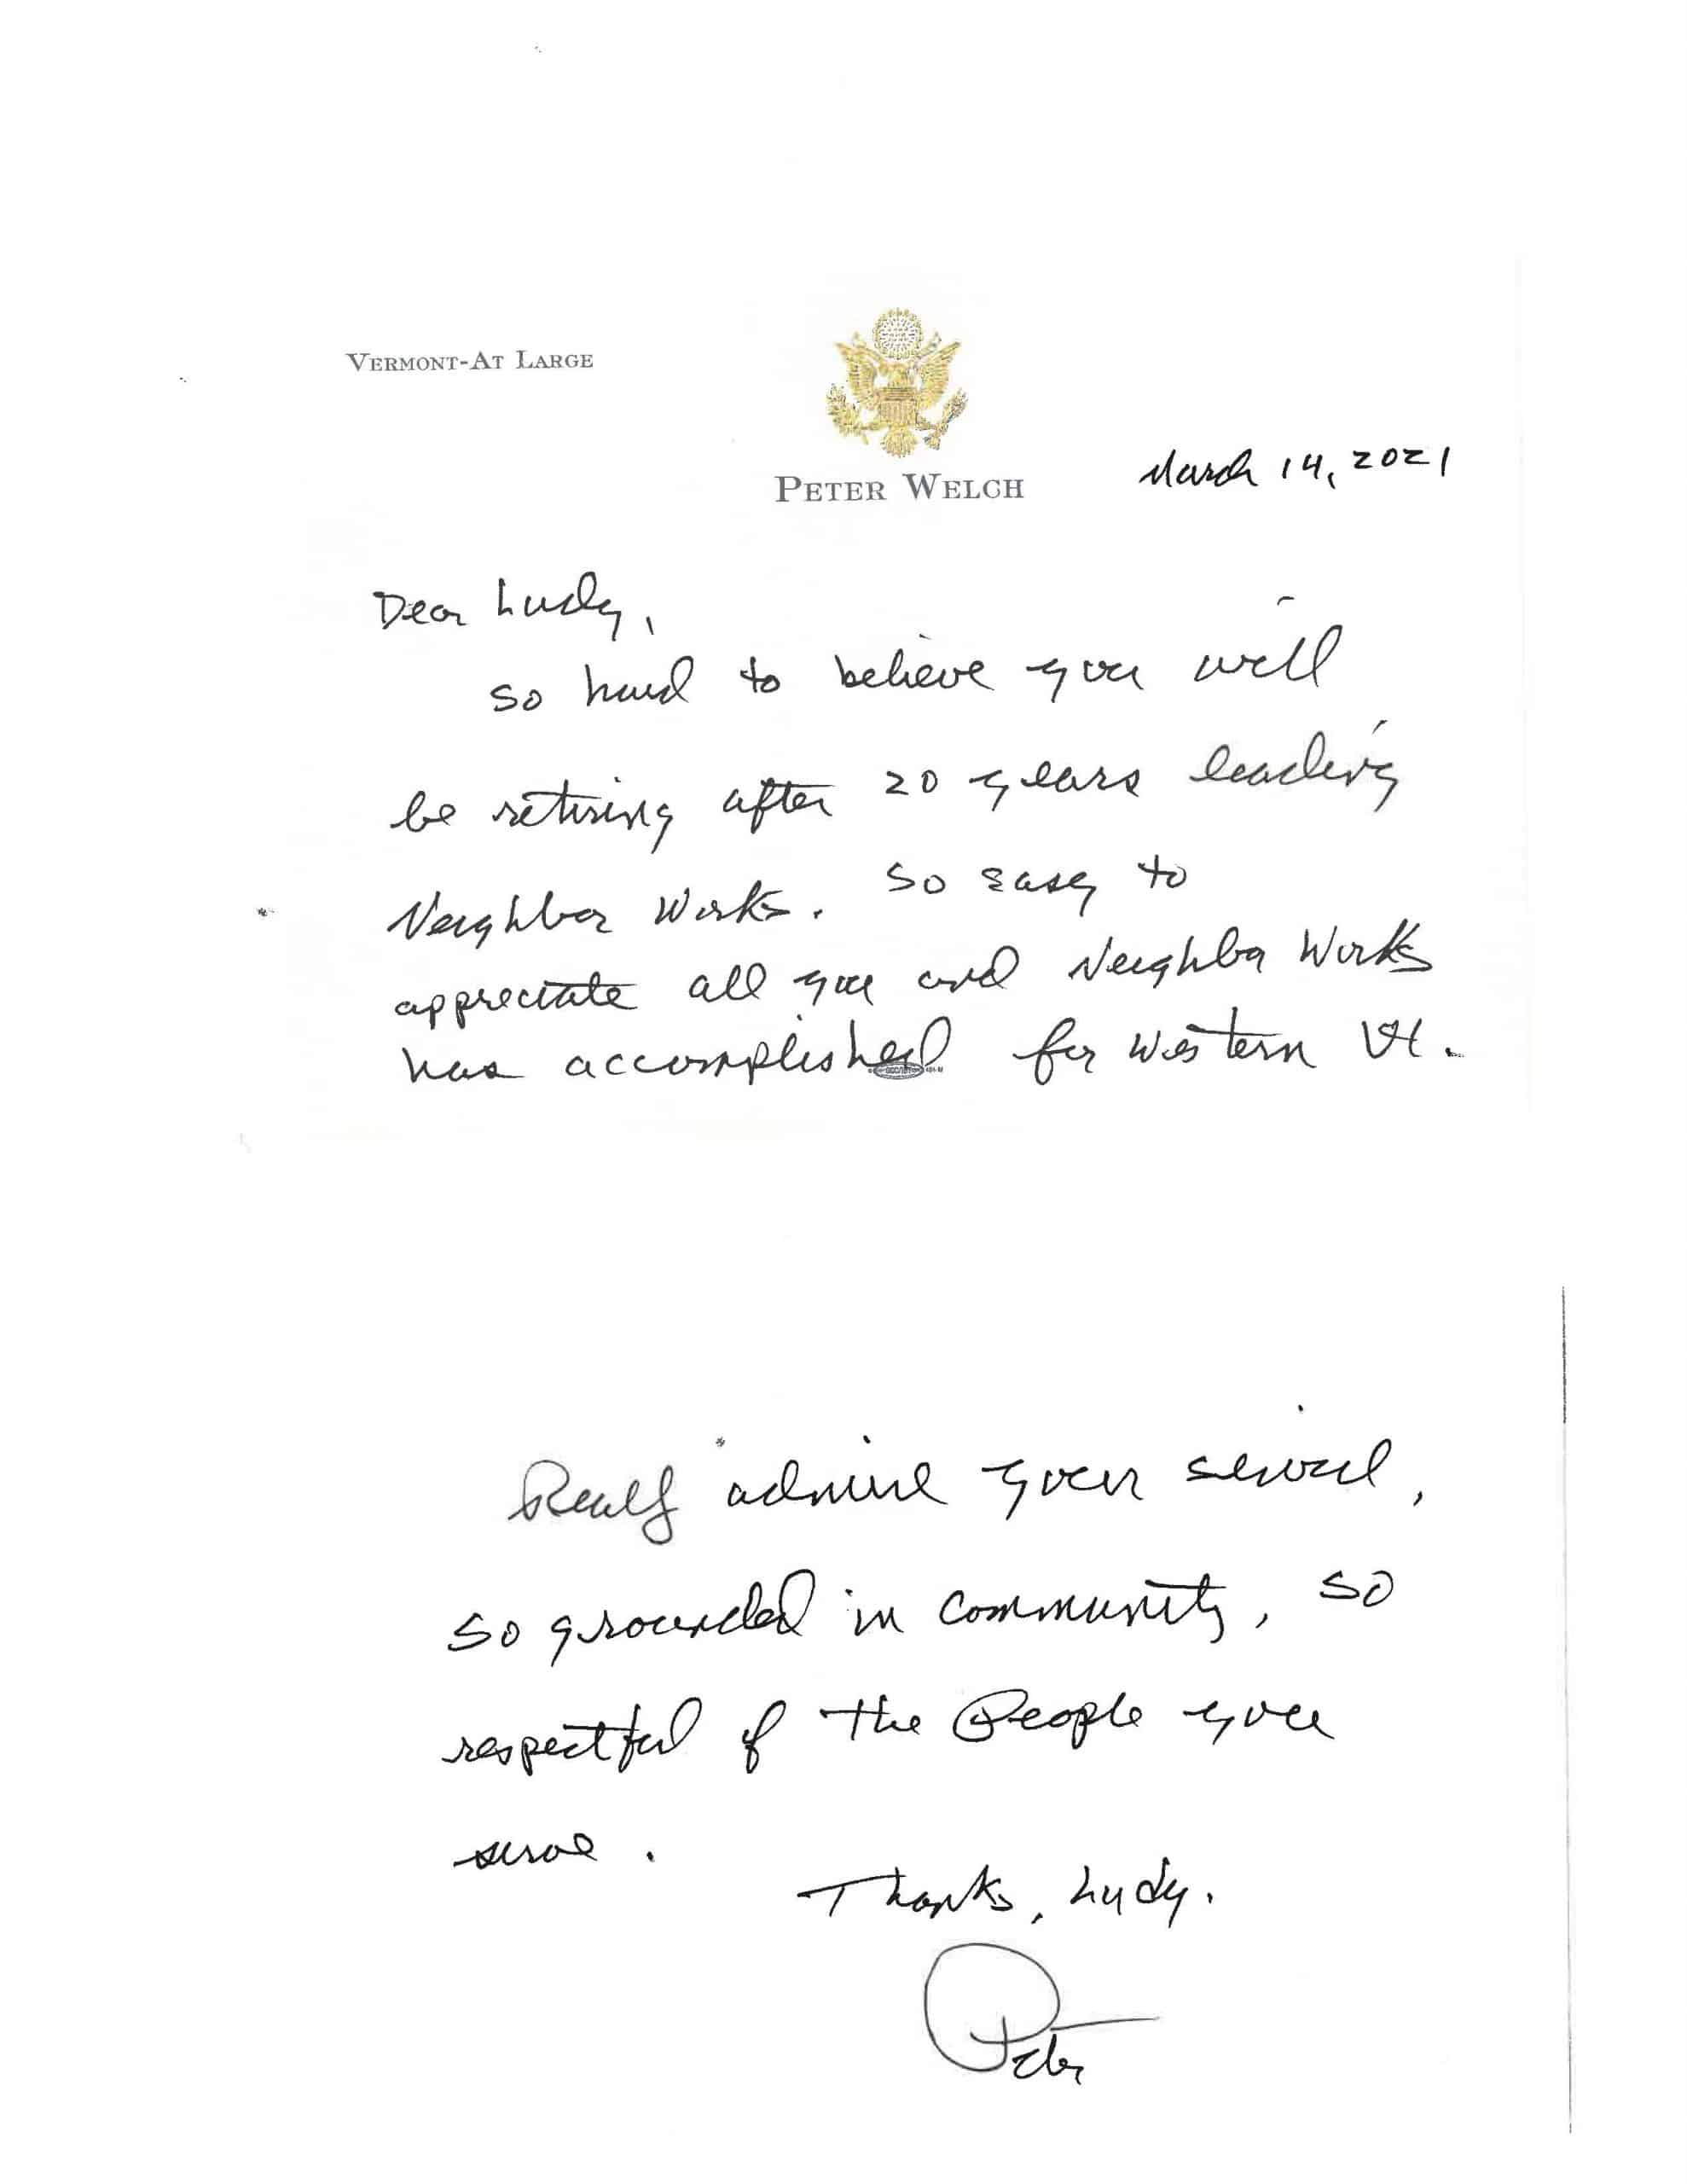 VERMONT-AT LARGE
PETER WELCH
March 14, 2021
Dear Ludy,
so hard to believe you will
be retiring after 20 years leading
Neighbor Works. So easy to
appreciate all you and Neighbor Works
has accomplished for Western Vt.
Really admire your service,
so grounded in community, so
respectful of the People you
serve.
Thanks, Ludy.
Peter